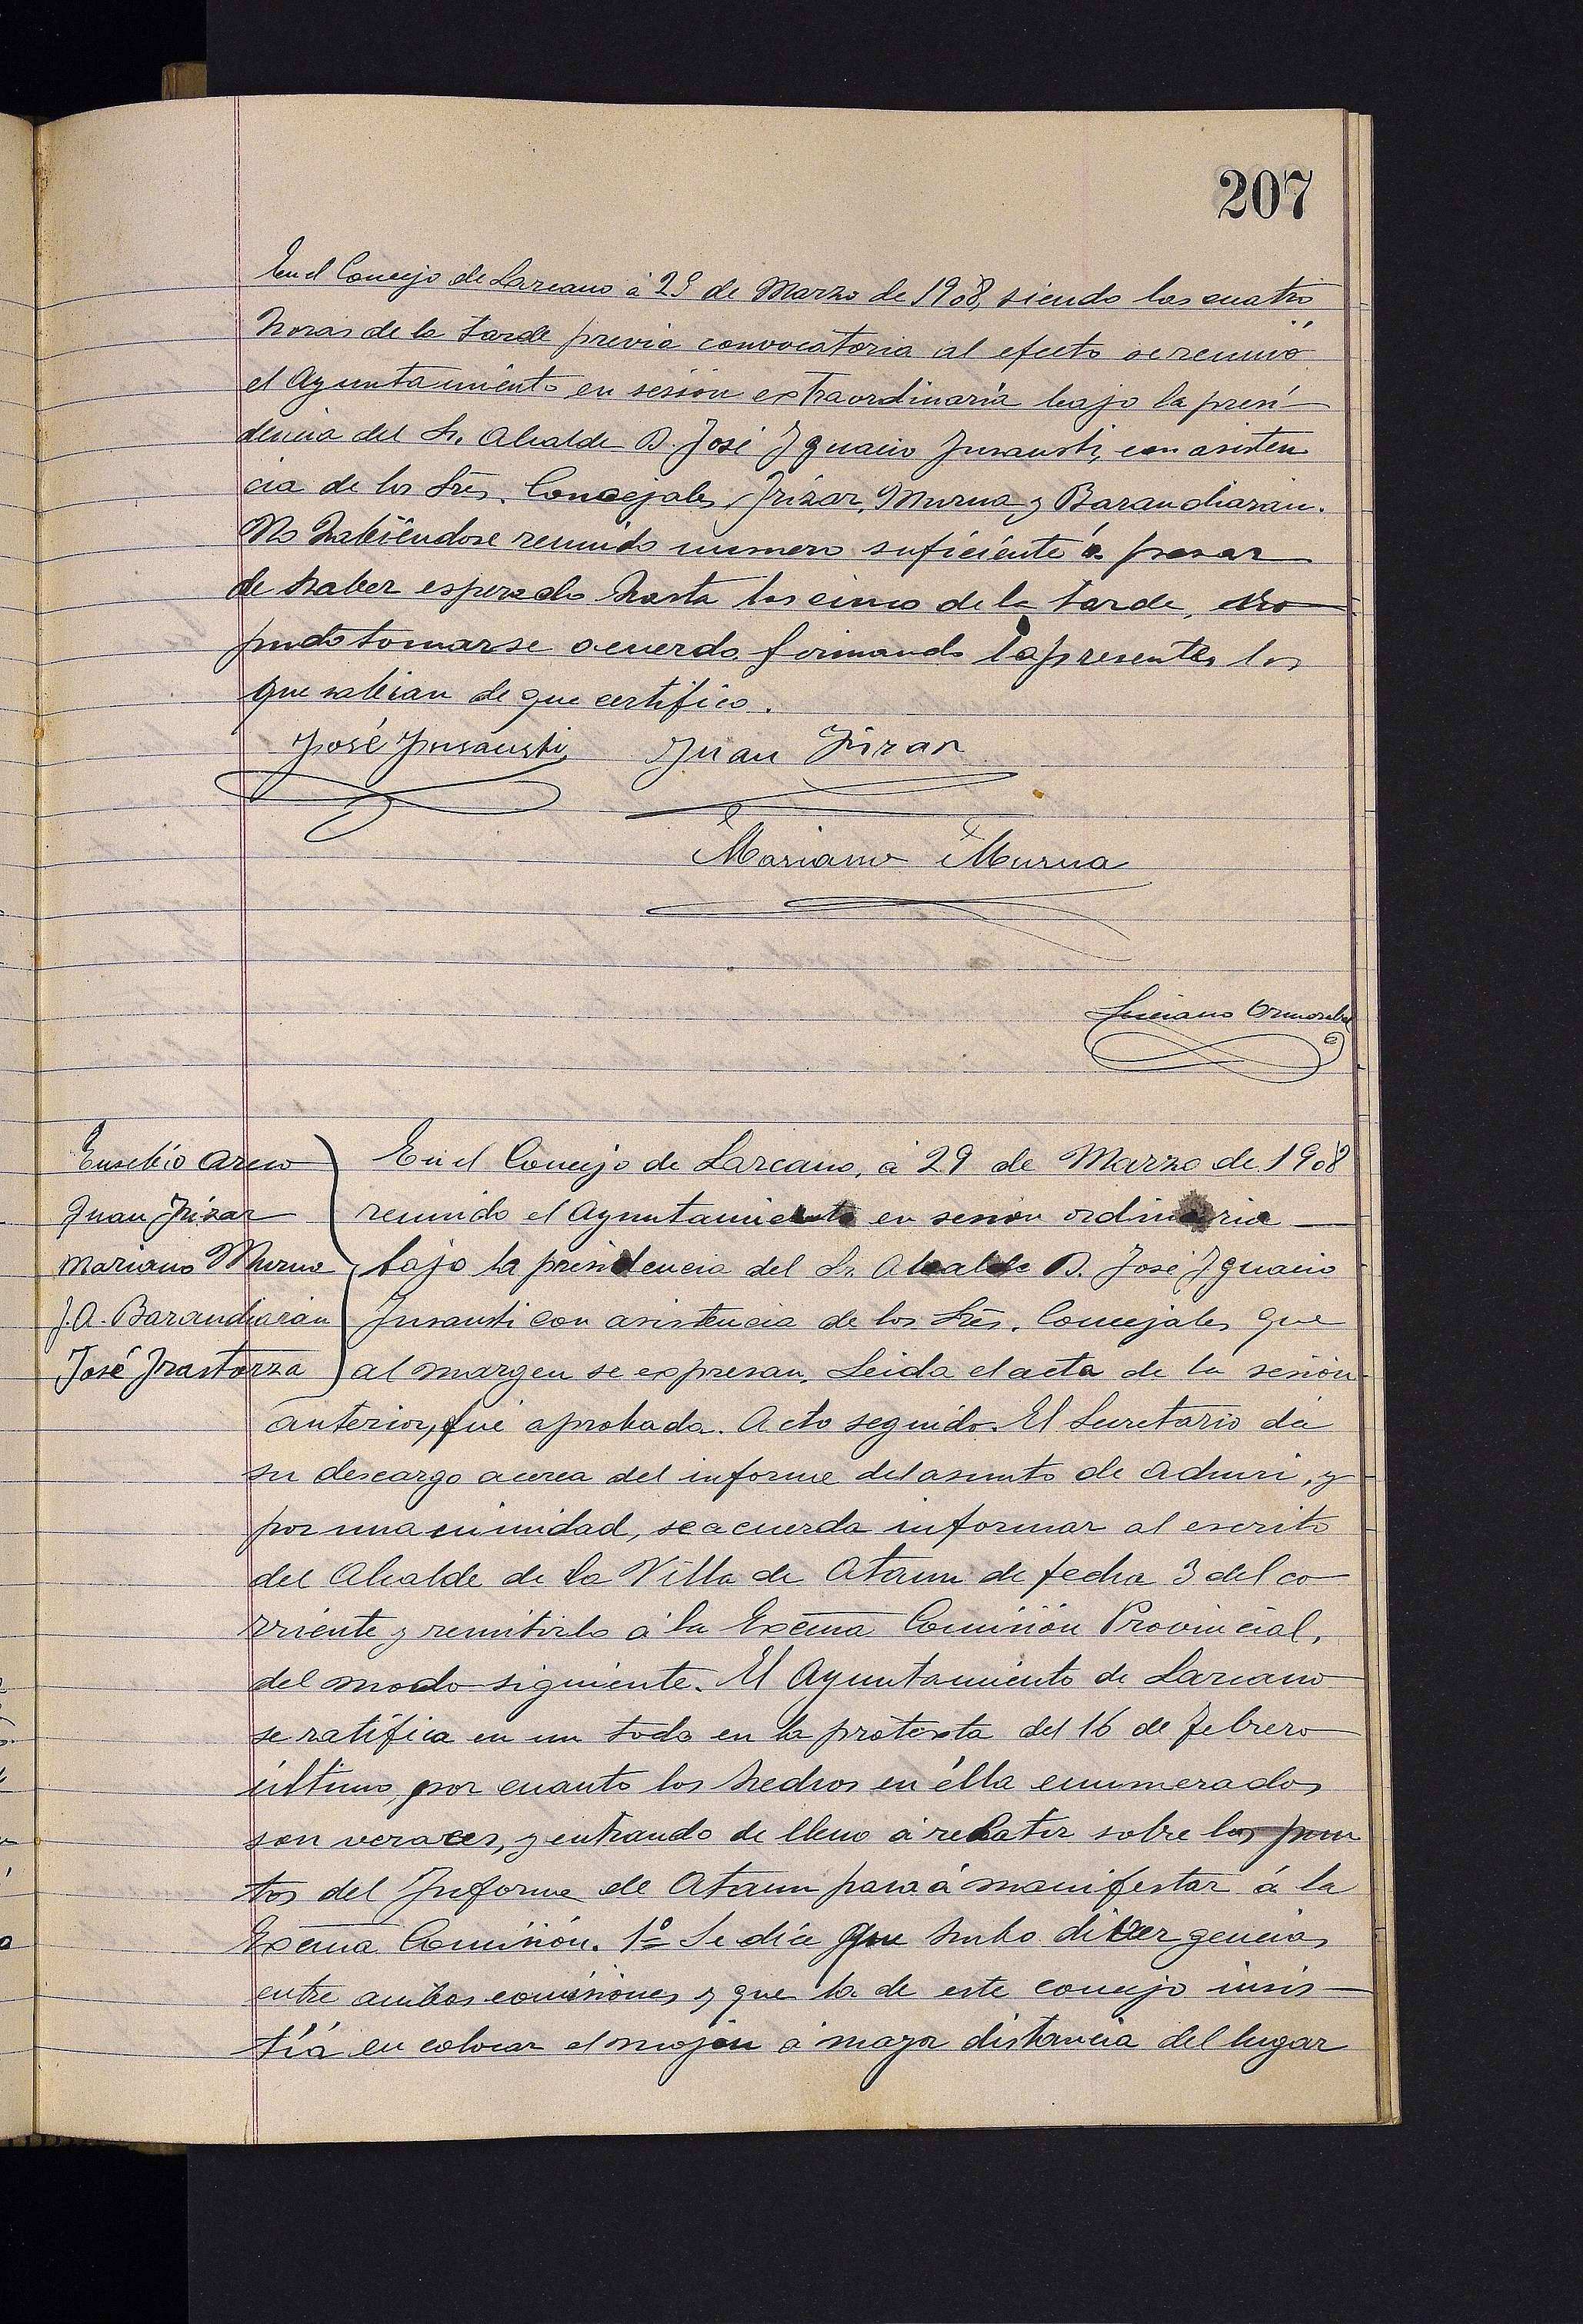 207
En el Concejo de Lazcano á 25 de Marzo de 1908, siendo las cuatro
horas de la tarde previa convocatoria al efecto se reunió
el Ayuntamiento en sesion extraordinaria bajo la presi-
dencia del Sr. Alcalde D. José Ignacio Insausti, con asisten
cia de los Sres. Concejales, Irizar, Murua y Barandiaran.
No habiéndose reunido numero suficiente á pesar
de haber esperado hasta las cinco de la tarde, no
pudo tomarse acuerdo firmando la presentes los
que sabian de que certifico.
José Insausti Juan Irizar
Mariano Murua
Luciano
Eusebio Areso
Juan Irizar
Mariano Murua
J. A. Barandiarán
José Irastorza
En el Concejo de Lazcano, á 29 de Marzo de 1908
reunido el Ayuntamiento en sesion ordinaria
bajo la presidencia del Sr. Alcalde D. José Ignacio
Insausti con asistencia de los Sres. Concejales que
al margen se expresan. Leida el acta de la sesión
anterior, fué aprobada. Acto seguido. El Secretario dá
su descargo acerca del informe del asunto de Aduni, y
por unaninidad, se acuerda informar al escrito
del Alcalde de la Villa de Ataun de fecha 3 del co
rriente y remitirlo á la Excma Comisión Provincial,
del modo siguiente. El Ayuntamiento de Lazcano
se ratifica en un todo en la protesta del 16 de Febrero
último, por cuanto los hechos en élla enumerados
son veraces, y entrando de lleno á rebatir sobre los pun
tos del Informe de Ataun pasa á manifestar á la
Excma Comisión. 1º Se dice que hubo divergencias
entre ambas comisiones y que la de este concejo insis-
tía en colocar el mojón á mayor distancia del lugar